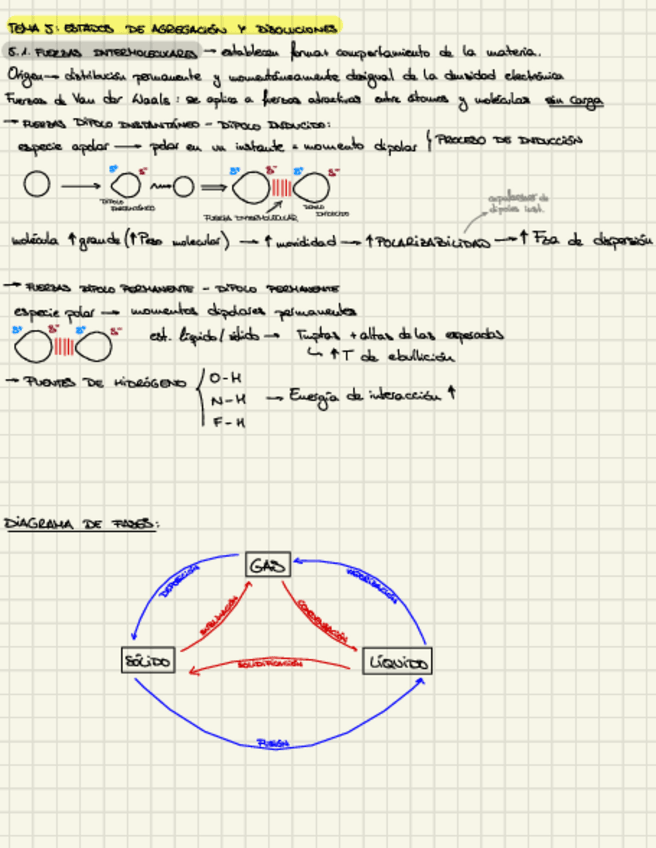 TEMA 5: ESTADOS DE AGREGACIÓN Y DISOLUCIONES
5.1. FUERZAS INTERMOLECULARES → establecen forma + comportamiento de la materia.
Origen → distribución permanente y momentáneamente desigual de la densidad electrónica
Fuerzas de Van der Waals: se aplica a fuerzas atractivas entre átomos y moléculas sin carga
→ FUERZAS DIPOLO INSTANTÁNEO - DIPOLO INDUCIDO:
especie apolar → polar en un instante = momento dipolar } PROCESO DE INDUCCIÓN
δ+ δ- δ+ δ- δ+ δ-
DIPOLO INSTANTÁNEO
FUERZA INTERMOLECULAR
DIPOLO INDUCIDO
dipolos inst.
molécula ↑ grande (↑ Peso molecular) → ↑ movilidad → ↑ POLARIZABILIDAD → ↑ Fza de dispersión
→ FUERZAS DIPOLO PERMANENTE - DIPOLO PERMANENTE
especie polar → momentos dipolares permanentes
δ+ δ- δ+ δ-
est. líquido/sólido → Tmptas + altas de las esperadas
↳ ↑ T de ebullición
→ PUENTES DE HIDRÓGENO { O-H
N-H → Energía de interacción ↑
F-H
DIAGRAMA DE FASES:
GAS
DEPOSICIÓN
VAPORIZACIÓN
SUBLIMACIÓN
CONDENSACIÓN
SÓLIDO
SOLIDIFICACIÓN
LÍQUIDO
FUSIÓN